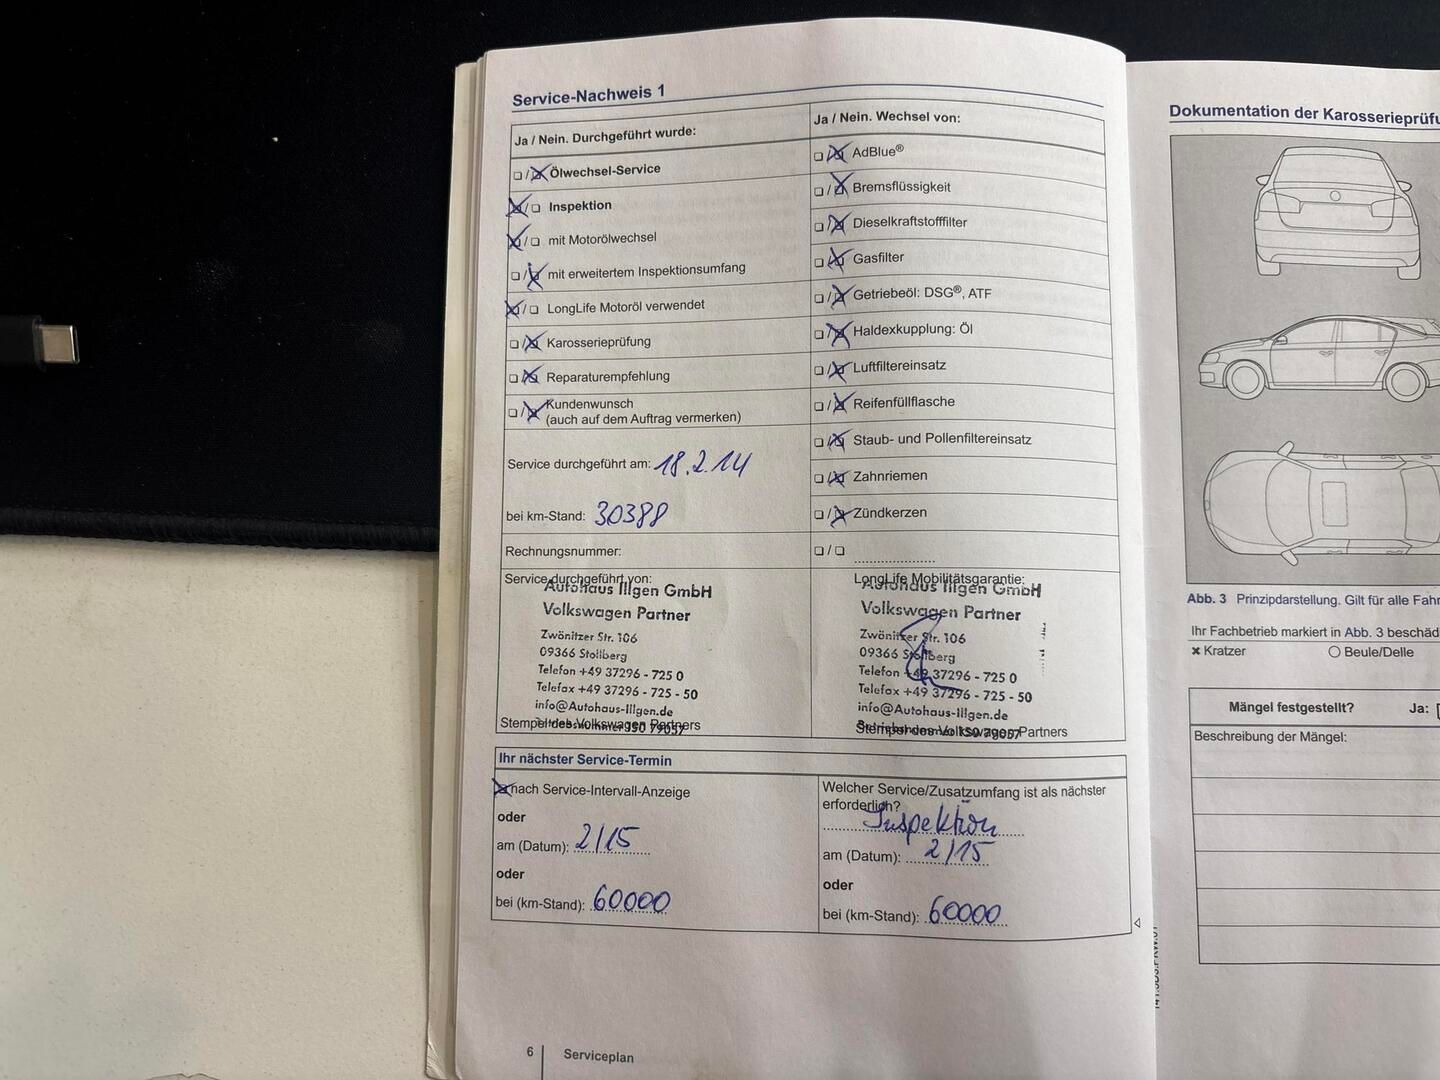 Service-Nachweis 1
Ja / Nein. Durchgeführt wurde:
❑ / ☒ Ölwechsel-Service
☒ / ❑ Inspektion
☒ / ❑ mit Motorölwechsel
❑ / ☒ mit erweitertem Inspektionsumfang
☒ / ❑ LongLife Motoröl verwendet
❑ / ☒ Karosserieprüfung
❑ / ☒ Reparaturempfehlung
❑ / ☒ Kundenwunsch
(auch auf dem Auftrag vermerken)
Service durchgeführt am: 18.2.14
bei km-Stand: 30388
Rechnungsnummer:
Ja / Nein. Wechsel von:
❑ / ☒ AdBlue®
❑ / ☒ Bremsflüssigkeit
❑ / ☒ Dieselkraftstofffilter
❑ / ☒ Gasfilter
❑ / ☒ Getriebeöl: DSG®, ATF
❑ / ☒ Haldexkupplung: Öl
❑ / ☒ Luftfiltereinsatz
❑ / ☒ Reifenfüllflasche
❑ / ☒ Staub- und Pollenfiltereinsatz
❑ / ☒ Zahnriemen
❑ / ☒ Zündkerzen
❑ / ❑
Service durchgeführt von:
Autohaus Illgen GmbH
Volkswagen Partner
Zwönitzer Str. 106
09366 Stollberg
Telefon +49 37296 - 725 0
Telefax +49 37296 - 725 - 50
info@Autohaus-Illgen.de
Stempel des Volkswagen Partners
LongLife Mobilitätsgarantie:
Autohaus Illgen GmbH
Volkswagen Partner
Zwönitzer Str. 106
09366 Stollberg
Telefon +49 37296 - 725 0
Telefax +49 37296 - 725 - 50
info@Autohaus-Illgen.de
Stempel des Volkswagen Partners
Ihr nächster Service-Termin
☒ nach Service-Intervall-Anzeige
oder
am (Datum): 2/15
oder
bei (km-Stand): 60000
Welcher Service/Zusatzumfang ist als nächster
erforderlich?
Inspektion
am (Datum): 2/15
oder
bei (km-Stand): 60000
6 Serviceplan
Dokumentation der Karosserieprüfu
Abb. 3 Prinzipdarstellung. Gilt für alle Fahr
Ihr Fachbetrieb markiert in Abb. 3 beschäd
✖ Kratzer
❍ Beule/Delle
Mängel festgestellt? Ja:
Beschreibung der Mängel: